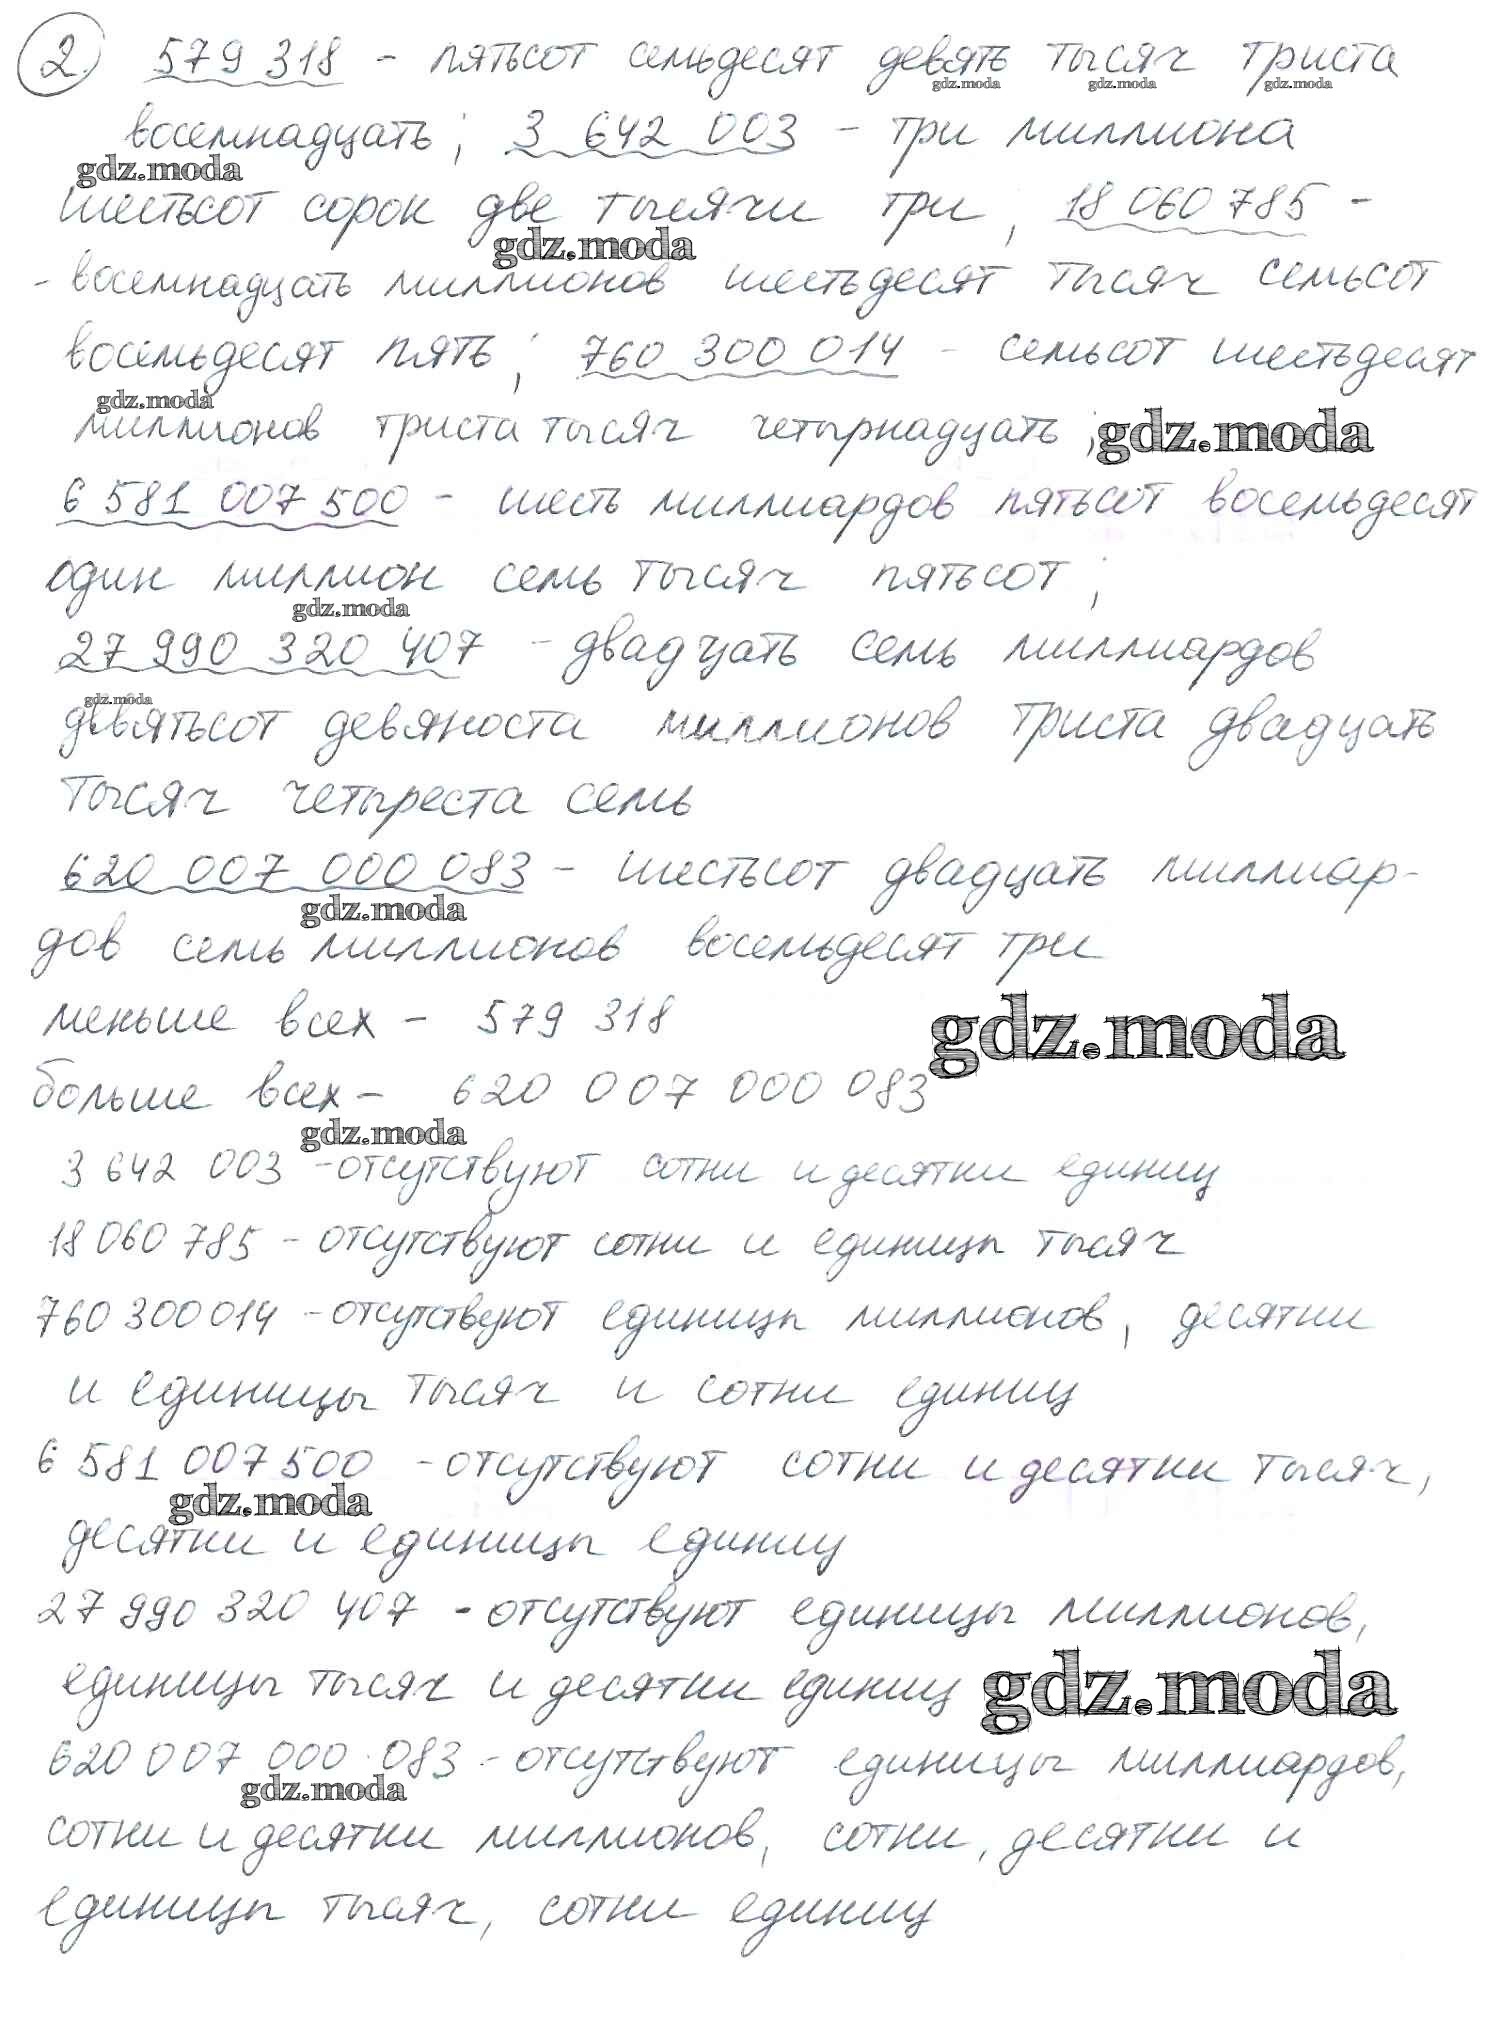 2. 579 318 - пятьсот семьдесят девять тысяч триста
gdz.moda gdz.moda gdz.moda
восемнадцать; 3 642 003 - три миллиона
gdz.moda
шестьсот сорок две тысячи три; 18 060 785 -
gdz.moda
- восемнадцать миллионов шестьдесят тысяч семьсот
восемьдесят пять; 760 300 014 - семьсот шестьдесят
gdz.moda
миллионов триста тысяч четырнадцать; gdz.moda
6 581 007 500 - шесть миллиардов пятьсот восемьдесят
один миллион семь тысяч пятьсот;
gdz.moda
27 990 320 407 - двадцать семь миллиардов
gdz.moda
девятьсот девяноста миллионов триста двадцать
тысяч четыреста семь
620 007 000 083 - шестьсот двадцать миллиар-
gdz.moda
дов семь миллионов восемьдесят три
меньше всех - 579 318
gdz.moda
больше всех - 620 007 000 083
gdz.moda
3 642 003 - отсутствуют сотни и десятки единиц
18 060 785 - отсутствуют сотни и единицы тысяч
760 300 014 - отсутствуют единицы миллионов, десятки
и единицы тысяч и сотни единиц
6 581 007 500 - отсутствуют сотни и десятки тысяч,
gdz.moda
десятки и единицы единиц
27 990 320 407 - отсутствуют единицы миллионов,
единицы тысяч и десятки единиц gdz.moda
620 007 000 083 - отсутствуют единицы миллиардов,
gdz.moda
сотни и десятки миллионов, сотни, десятки и
единицы тысяч, сотни единиц